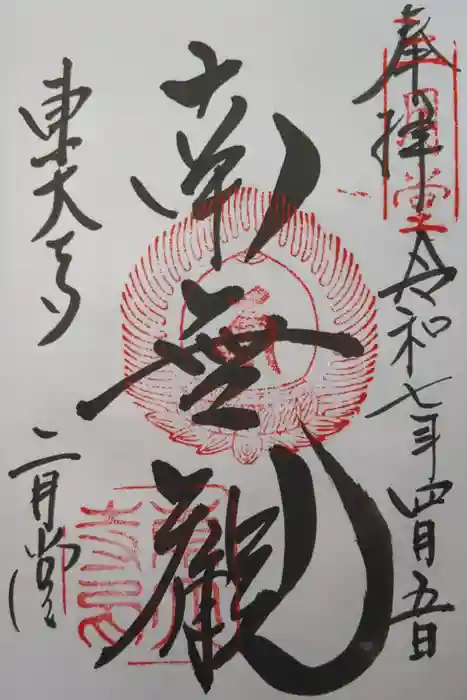 奉拝 令和七年四月五日
南無観
東大寺
二月堂